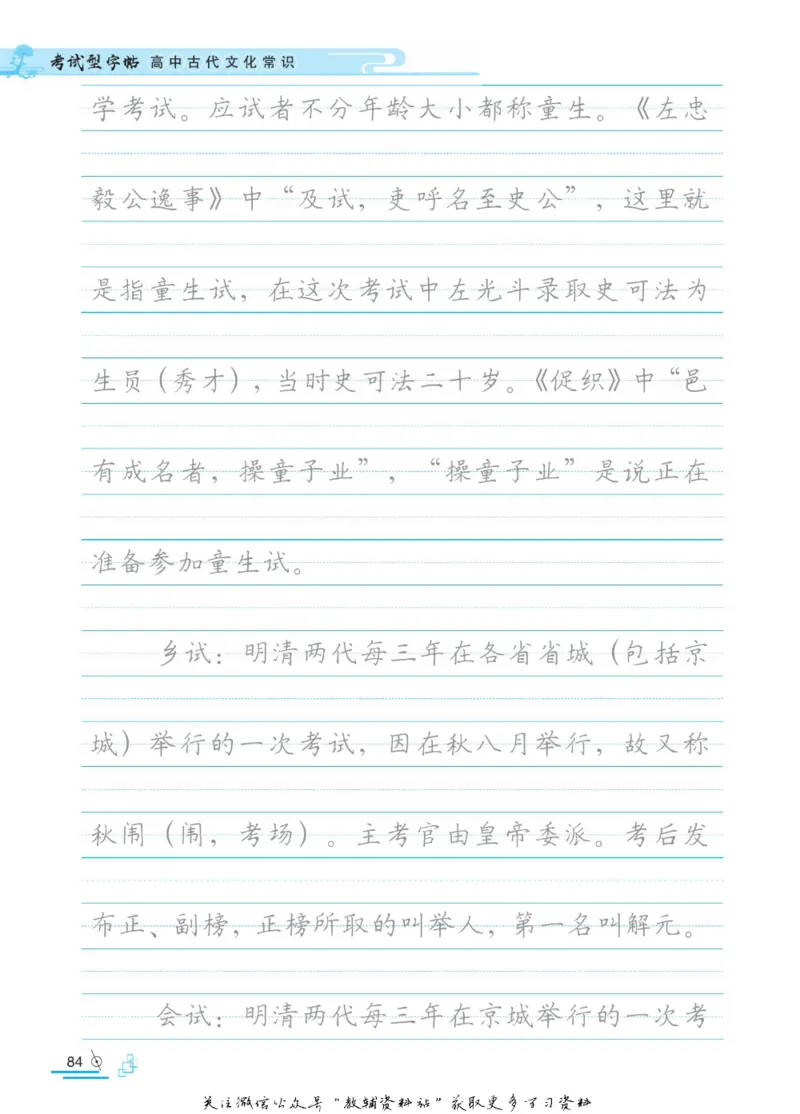 考试型字帖 高中古代文化常识
学考试。应试者不分年龄大小都称童生。《左忠
毅公逸事》中“及试，吏呼名至史公”，这里就
是指童生试，在这次考试中左光斗录取史可法为
生员（秀才），当时史可法二十岁。《促织》中“邑
有成名者，操童子业”，“操童子业”是说正在
准备参加童生试。
乡试：明清两代每三年在各省省城（包括京
城）举行的一次考试，因在秋八月举行，故又称
秋闱（闱，考场）。主考官由皇帝委派。考后发
布正、副榜，正榜所取的叫举人，第一名叫解元。
会试：明清两代每三年在京城举行的一次考
84
关注微信公众号“教辅资料站”获取更多学习资料